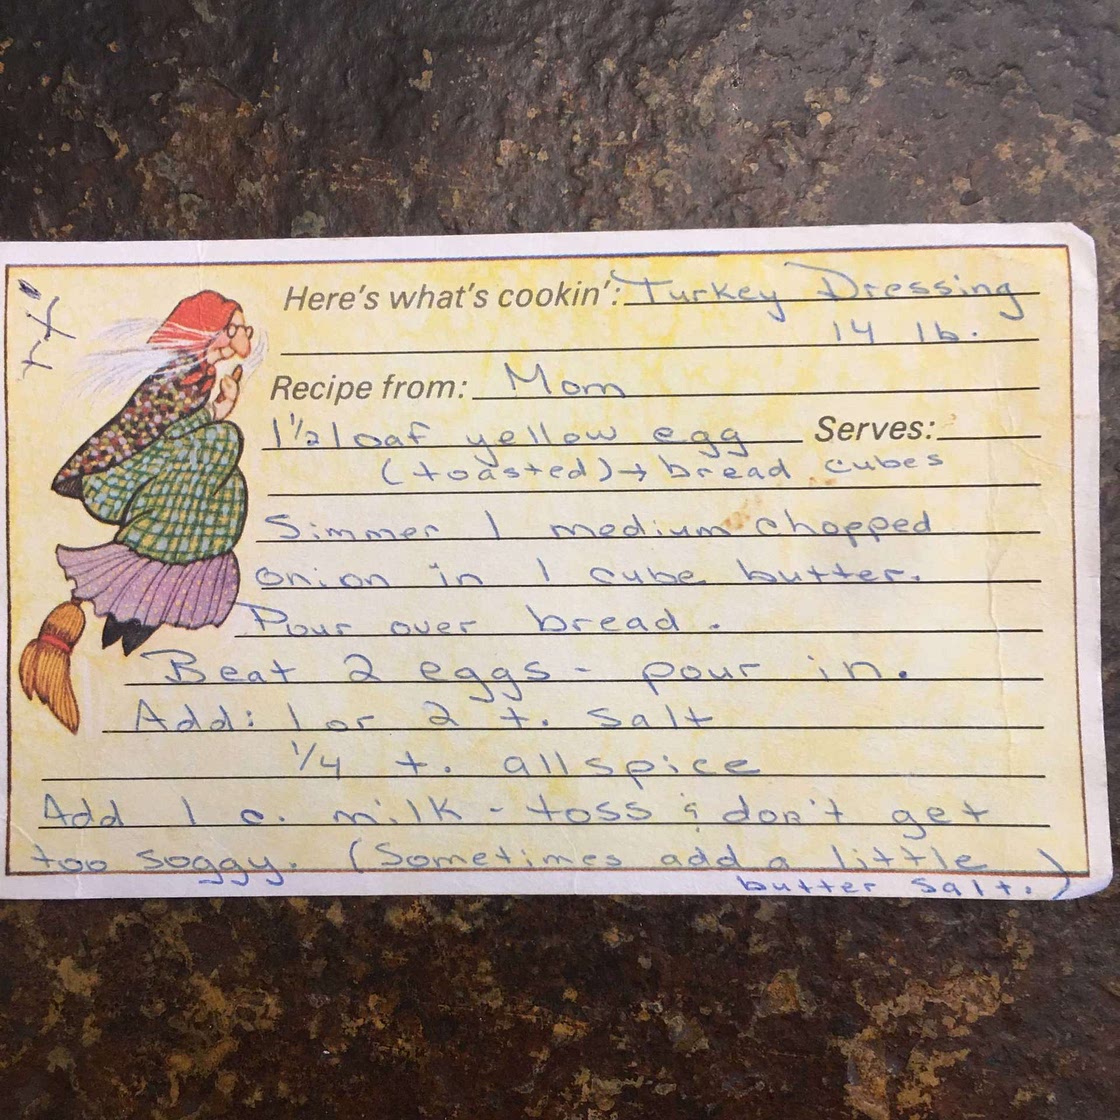 Here's what's cookin': Turkey Dressing
14 lb.
Recipe from: Mom
1 1/2 loaf yellow egg Serves:
(toasted) → bread cubes
Simmer 1 medium chopped
onion in 1 cube butter.
Pour over bread.
Beat 2 eggs - pour in.
Add: 1 or 2 t. salt
1/4 t. allspice
Add 1 c. milk - toss & don't get
too soggy. (Sometimes add a little
butter salt.)